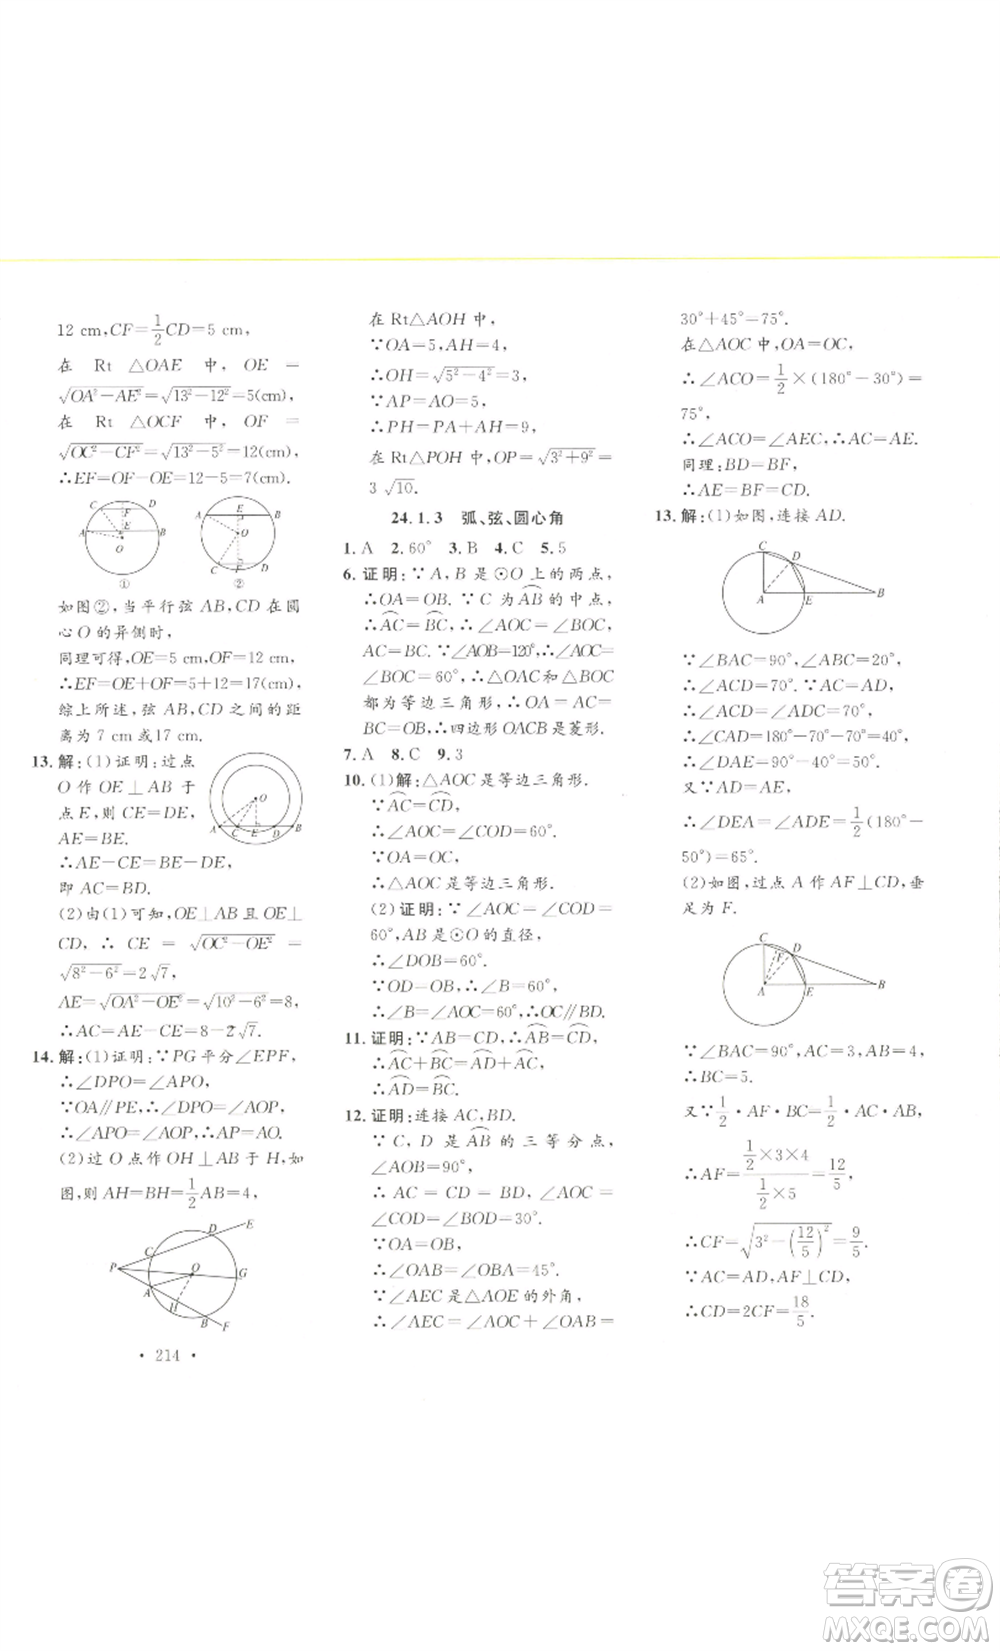 12 cm,CF=1/2CD=5 cm,
在 Rt △OAE 中, OE =
√(OA²-AE²)=√(13²-12²)=5(cm),
在 Rt △OCF 中, OF =
√(OC²-CF²)=√(13²-5²)=12(cm),
∴EF=OF-OE=12-5=7(cm).
C F D
A E B
O
①
A E B
O
C F D
②
如图②,当平行弦 AB,CD 在圆
心 O 的异侧时,
同理可得,OE=5 cm,OF=12 cm,
∴EF=OE+OF=5+12=17(cm).
综上所述,弦 AB,CD 之间的距
离为 7 cm或17 cm.
13.解:(1)证明:过点
O 作 OE⊥AB 于
点 E,则 CE=DE,
AE=BE.
∴AE-CE=BE-DE,
即 AC=BD.
O
A C E D B
(2)由(1)可知,OE⊥AB 且 OE⊥
CD,∴ CE = √(OC²-OE²) =
√(8²-6²)=2√7,
AE=√(OA²-OE²)=√(10²-6²)=8,
∴AC=AE-CE=8-2√7.
14.解:(1)证明:∵PG 平分∠EPF,
∴∠DPO=∠APO,
∵OA∥PE,∴∠DPO=∠AOP,
∴∠APO=∠AOP,∴AP=AO.
(2)过 O 点作 OH⊥AB 于 H,如
图,则 AH=BH=1/2AB=4,
E
D
C
P O G
A
H
B F
· 214 ·
在 Rt△AOH 中,
∵OA=5,AH=4,
∴OH=√(5²-4²)=3,
∵AP=AO=5,
∴PH=PA+AH=9,
在 Rt△POH 中,OP=√(3²+9²)=
3√10.
24.1.3 弧、弦、圆心角
1.A 2.60° 3.B 4.C 5.5
6.证明:∵A,B 是⊙O 上的两点,
∴OA=OB.∵C 为⌒AB的中点,
∴⌒AC=⌒BC,∴∠AOC=∠BOC,
AC=BC.∵∠AOB=120°,∴∠AOC=
∠BOC=60°,∴△OAC和△OBC
都为等边三角形,∴OA=AC=
BC=OB,∴四边形 OACB 是菱形.
7.A 8.C 9.3
10.(1)解:△AOC 是等边三角形.
∵⌒AC=⌒CD,
∴∠AOC=∠COD=60°.
∵OA=OC,
∴△AOC 是等边三角形.
(2)证明:∵∠AOC=∠COD=
60°,AB 是⊙O 的直径,
∴∠DOB=60°.
∵OD=OB,
∴∠B=∠AOC=60°,∴OC∥BD.
11.证明:∵AB=CD,∴⌒AB=⌒CD,
∴⌒AC+⌒BC=⌒AD+⌒AC,
∴⌒AD=⌒BC.
12.证明:连接 AC,BD.
∵C,D 是⌒AB的三等分点,
∠AOB=90°,
∴ AC = CD = BD,∠AOC =
∠COD=∠BOD=30°.
∵OA=OB,
∴∠OAB=∠OBA=45°.
∵∠AEC 是△AOE 的外角,
∴∠AEC =∠AOC+∠OAB =
30°+45°=75°.
在△AOC 中,OA=OC,
∴∠ACO=1/2×(180°-30°)=
75°,
∴∠ACO=∠AEC,∴AC=AE.
同理:BD=BF,
∴AE=BF=CD.
13.解:(1)如图,连接 AD.
C
D
A E B
∵∠BAC=90°,∠ABC=20°,
∴∠ACD=70°.∵AC=AD,
∴∠ACD=∠ADC=70°,
∴∠CAD=180°-70°-70°=40°,
∴∠DAE=90°-40°=50°.
又∵AD=AE,
∴∠DEA=∠ADE=1/2(180°-
50°)=65°.
(2)如图,过点 A 作 AF⊥CD,垂
足为 F.
C
F D
A E B
∵∠BAC=90°,AC=3,AB=4,
∴BC=5.
又∵1/2·AF·BC=1/2·AC·AB,
∴AF=(1/2×3×4)/(1/2×5)=12/5,
∴CF=√(3²-(12/5)²)=9/5.
∵AC=AD,AF⊥CD,
∴CD=2CF=18/5.
答案卷
MXQE.COM